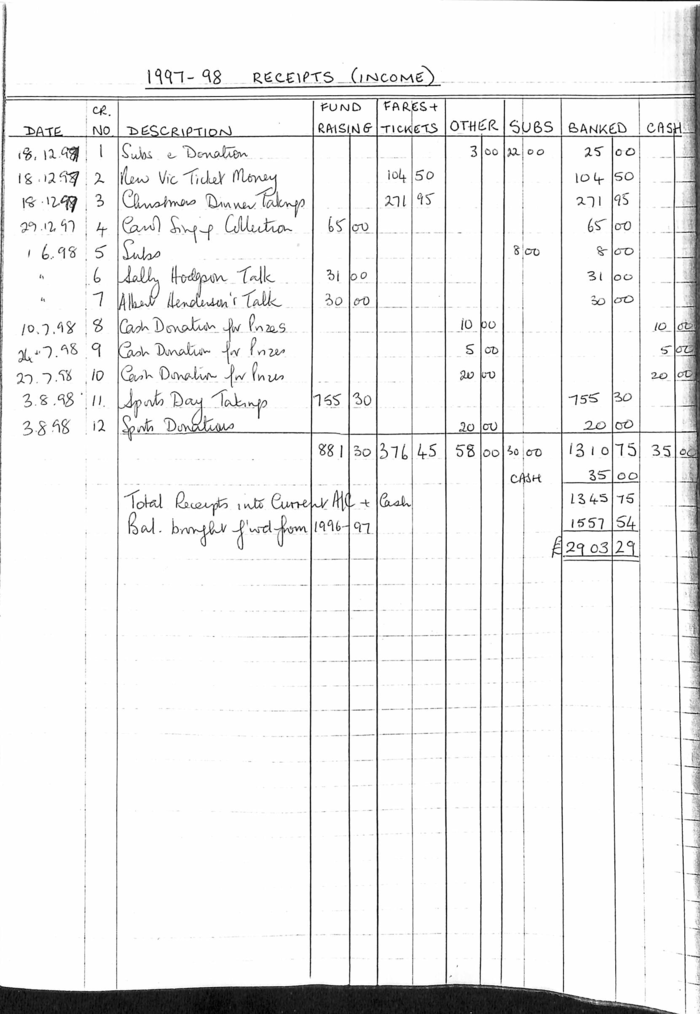 1997-98 RECEIPTS (INCOME)
DATE CR. NO. DESCRIPTION FUND RAISING FARES + TICKETS OTHER SUBS BANKED CASH
18.12.97 1 Subs & Donation 3 00 22 00 25 00
18.12.97 2 New Vic Ticket Money 104 50 104 50
18.12.97 3 Christmas Dinner Takings 271 95 271 95
29.12.97 4 Carol Singing Collection 65 00 65 00
1 6.98 5 Subs 8 00 8 00
" 6 Sally Hodgson Talk 31 00 31 00
" 7 Albert Henderson's Talk 30 00 30 00
10.7.98 8 Cash Donation for Prizes 10 00 10 00
24.7.98 9 Cash Donation for Prizes 5 00 5 00
27.7.98 10 Cash Donation for Prizes 20 00 20 00
3.8.98 11. Sports Day Takings 755 30 755 30
3.8.98 12 Sports Donations 20 00 20 00
881 30 376 45 58 00 30 00 1310 75 35 00
CASH 35 00
Total Receipts into Current A/C + Cash 1345 75
Bal. brought f'wd from 1996-97 1557 54
£2903 29